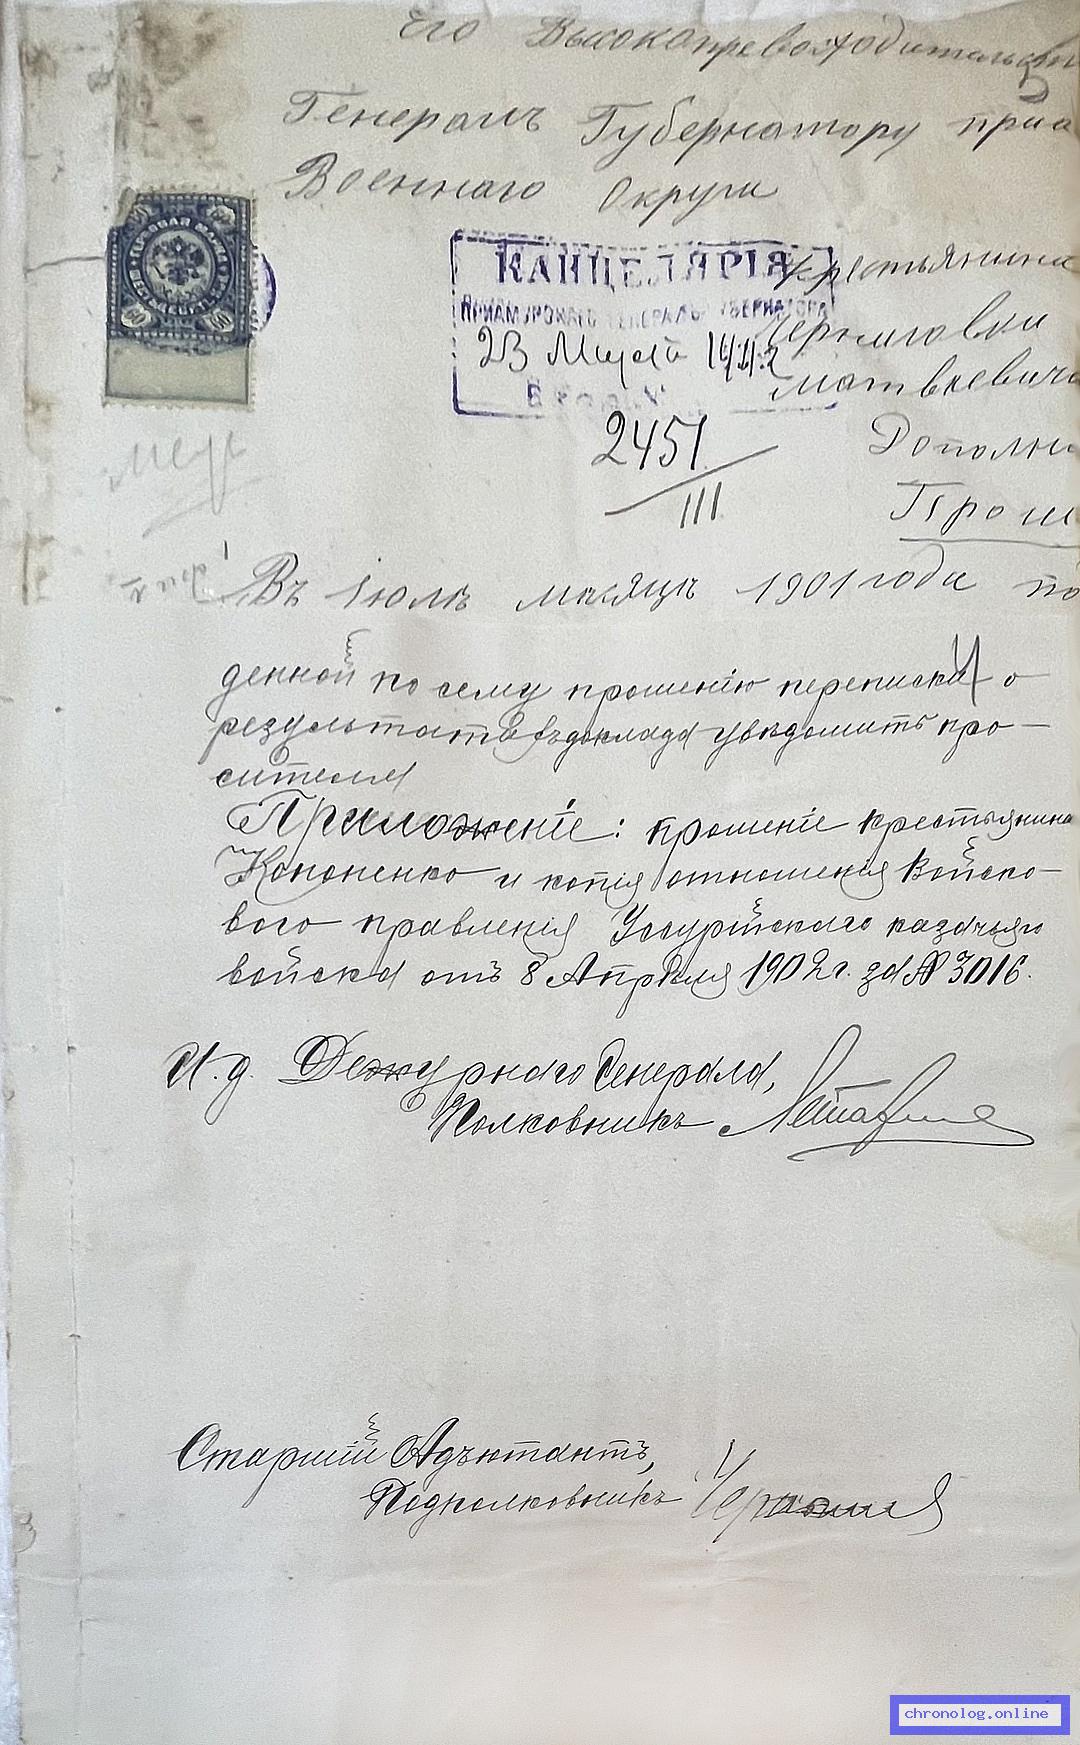 Его Высокопревосходительст
Генералъ Губернатору приа
Военнаго Округа
КАНЦЕЛЯРІЯ
ПРИАМУРСКАГО ГЕНЕРАЛЪ-ГУБЕРНАТОРА
23 Марта
2451
III
крестьянина
Матвѣевича
Дополн
Прош
Въ Іюлѣ мѣсяцѣ 1901 года по
денной по сему прошенію переписки о
результатѣ доклада увѣдомить про-
сителя
Приложеніе: прошеніе крестьянина
Кононенко и копія отношенія Войско-
вого правленія Уссурійскаго казачьяго
войска отъ 8 Апрѣля 1902 г. за № 3016.
И. д. Дежурнаго Генерала,
Полковникъ
Старшій Адъютантъ,
Подполковникъ
chronolog.online